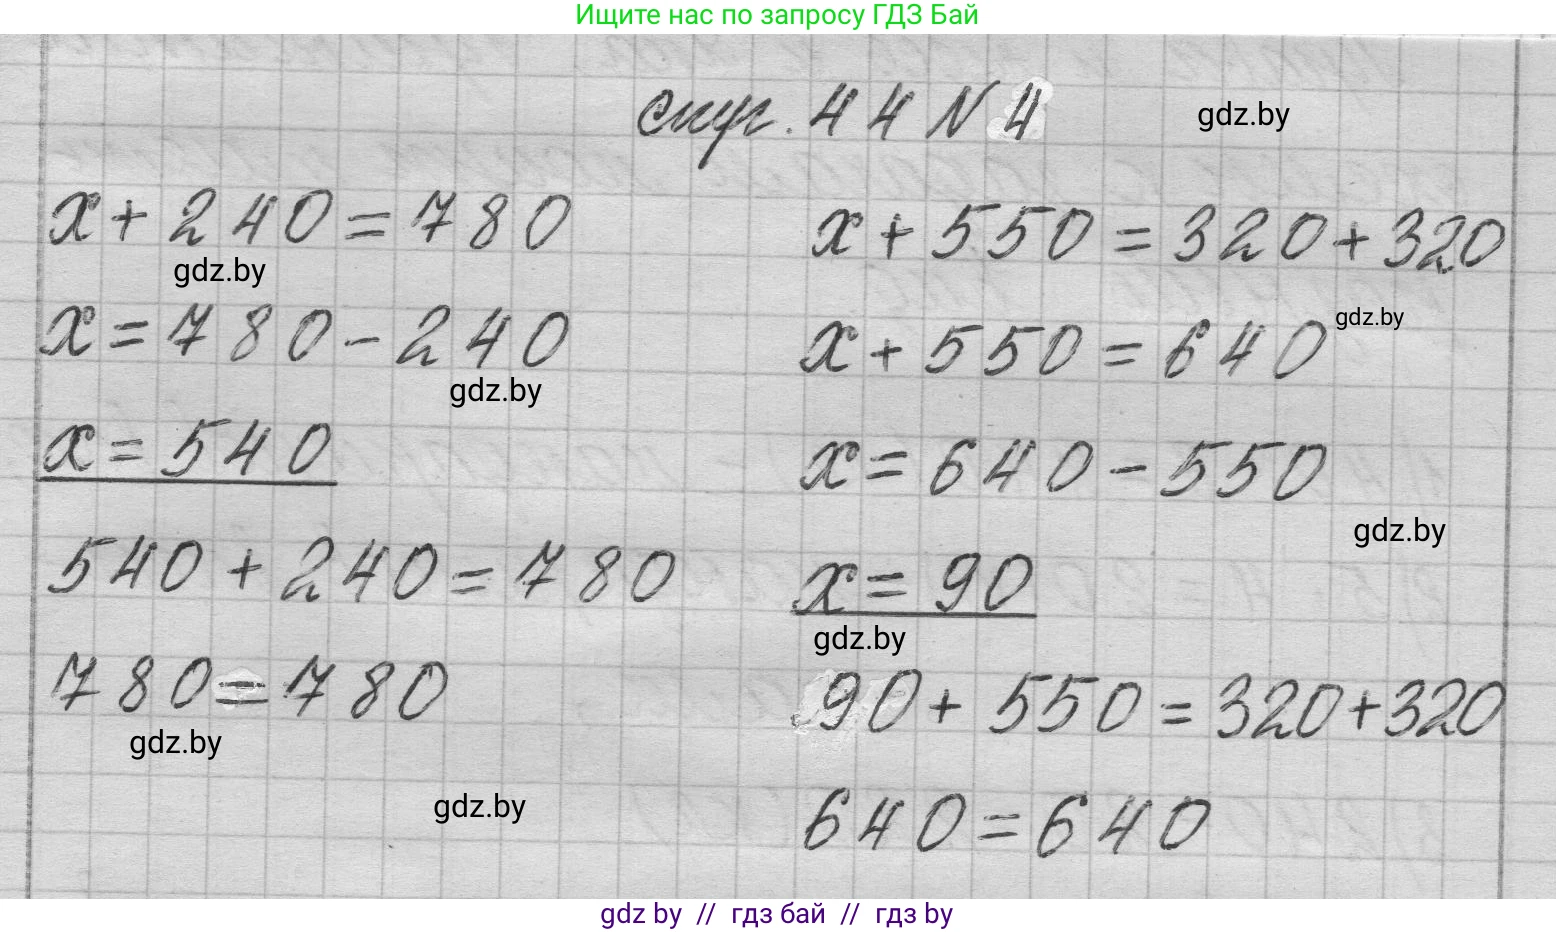 Ищите нас по запросу ГДЗ Бай
стр. 44 N 4
gdz.by
x + 240 = 780
gdz.by
x = 780 - 240
gdz.by
x = 540
540 + 240 = 780
780 = 780
gdz.by
gdz.by
x + 550 = 320 + 320
x + 550 = 640
gdz.by
x = 640 - 550
gdz.by
x = 90
gdz.by
90 + 550 = 320 + 320
640 = 640
gdz by // гдз бай // гдз by